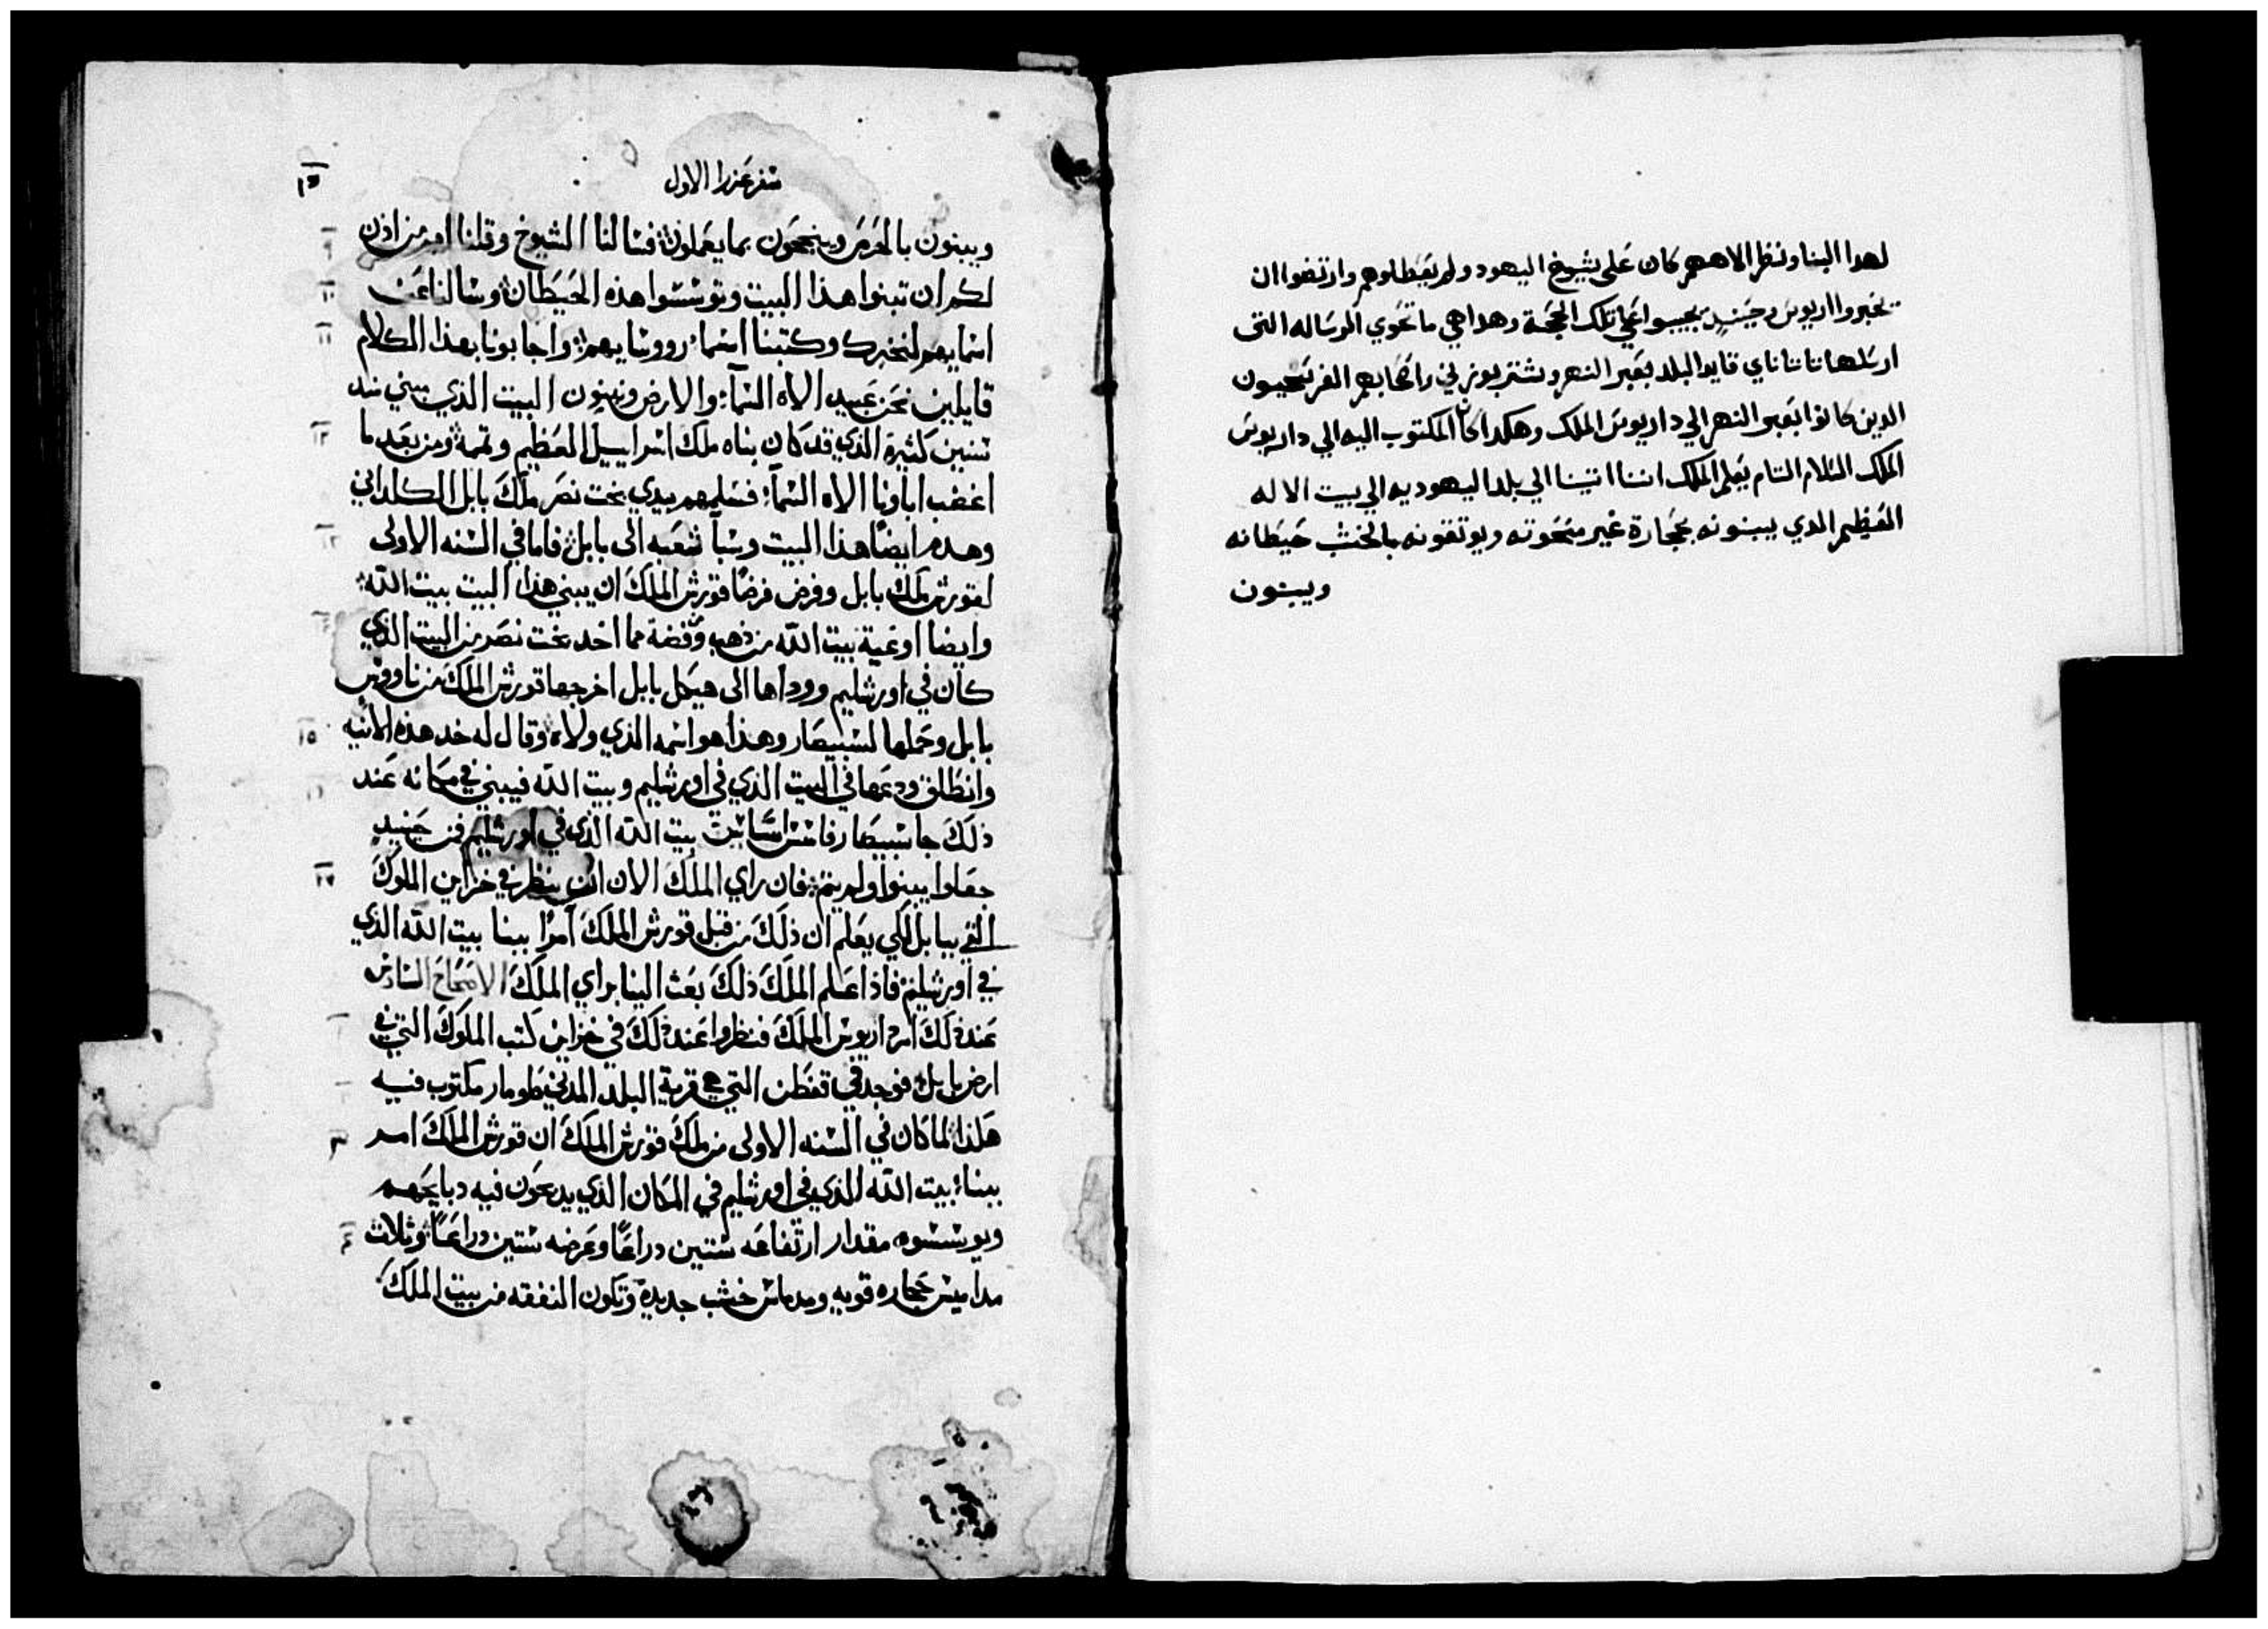 لهدا البنا ونظر الاههم كان على شيوخ اليهود ولم يعطلوهم وارتضوا ان
يخبروا اريوس وحينيد يجيبوا على تلك الحجة وهدا هي ما تحوي الرساله التى
ارسلها تاتاناي قايد البلد بعبر النهر وشتربوزني واصحابهم الفرسحيون
الدين كانوا بعبر النهر الي داريوس الملك وهكدا كان المكتوب اليه الي داريوس
الملك السلام التام يعلم الملك اننا اتينا الي بلد اليهوديه الي بيت الاله
العظيم الدي يبنونه بحجارة غير منحوته ويوتقونه بالخشب حيطانه
ويبنون
سفر عزرا الاول
ويبنون بالحرص وينجحون بما يعملون فسالنا الشيوخ وقلنا لهم من اذن ٩
لكم ان تبنوا هذا البيت وتوسسوا هذه الحيطان وسالنا عن ١٠
اسمايهم لنخبرك وكتبنا اسماء رووسايهم واجابونا بهذا الكلام ١١
قايلين نحن عبيد الاه السماء والارض ونبنون البيت الذي مبني مند
سنين كثيرة الذي قد كان بناه ملك اسراييل العظيم وتممه ومن بعد ما ١٢
اغضب اباونا الاه السماء فسلمهم بيدي بخت نصر ملك بابل الكلداني
وهدم ايضا هذا البيت وسبا شعبه الى بابل فاما في السنه الاولى ١٣
لقورش ملك بابل وفرض فرضا قورش الملك ان يبني هذا البيت بيت الله
وايضا اوعية بيت الله من ذهب وفضة مما اخد بخت نصر من البيت الذي ١٤
كان في اورشليم ووداها الى هيكل بابل اخرجها قورش الملك من ناووس
بابل وحملها لسبيصار وهذا هو اسمه الذي ولاه وقال له خد هذه الانيه ١٥
وانطلق ودعها في البيت الذي في اورشليم وبيت الله فيبني في مكانه عند ١٦
ذلك جا سبيصار فاسس اساسات بيت الله الذي في اورشليم فمن حينيد
جعلوا يبنوا ولم يتم فان راي الملك الان ان ينظر في خزاين الملوك ١٧
التي ببابل لكي يعلم ان ذلك من قبل قورش الملك امرا ببنا بيت الله الذي
في اورشليم فاذا علم الملك ذلك بعث الينا براي الملك الاصحاح السادس
عند ذلك امر داريوس الملك فنظروا عند ذلك في خزاين كتب الملوك التي في ١
ارض بابل فوجد في قفطن التي هي قرية البلد المدني طومار مكتوب فيه ٢
هكذا لما كان في السنه الاولى من ملك قورش الملك ان قورش الملك امر ٣
ببناء بيت الله الذي في اورشليم في المكان الذي يدبحون فيه دبايحهم
ويوسسوه مقدار ارتفاعه ستين دراعا وعرضه ستين دراعا وثلاث ٤
مداميس حجاره قويه ومدماس خشب جديدة وتكون النفقه من بيت الملك